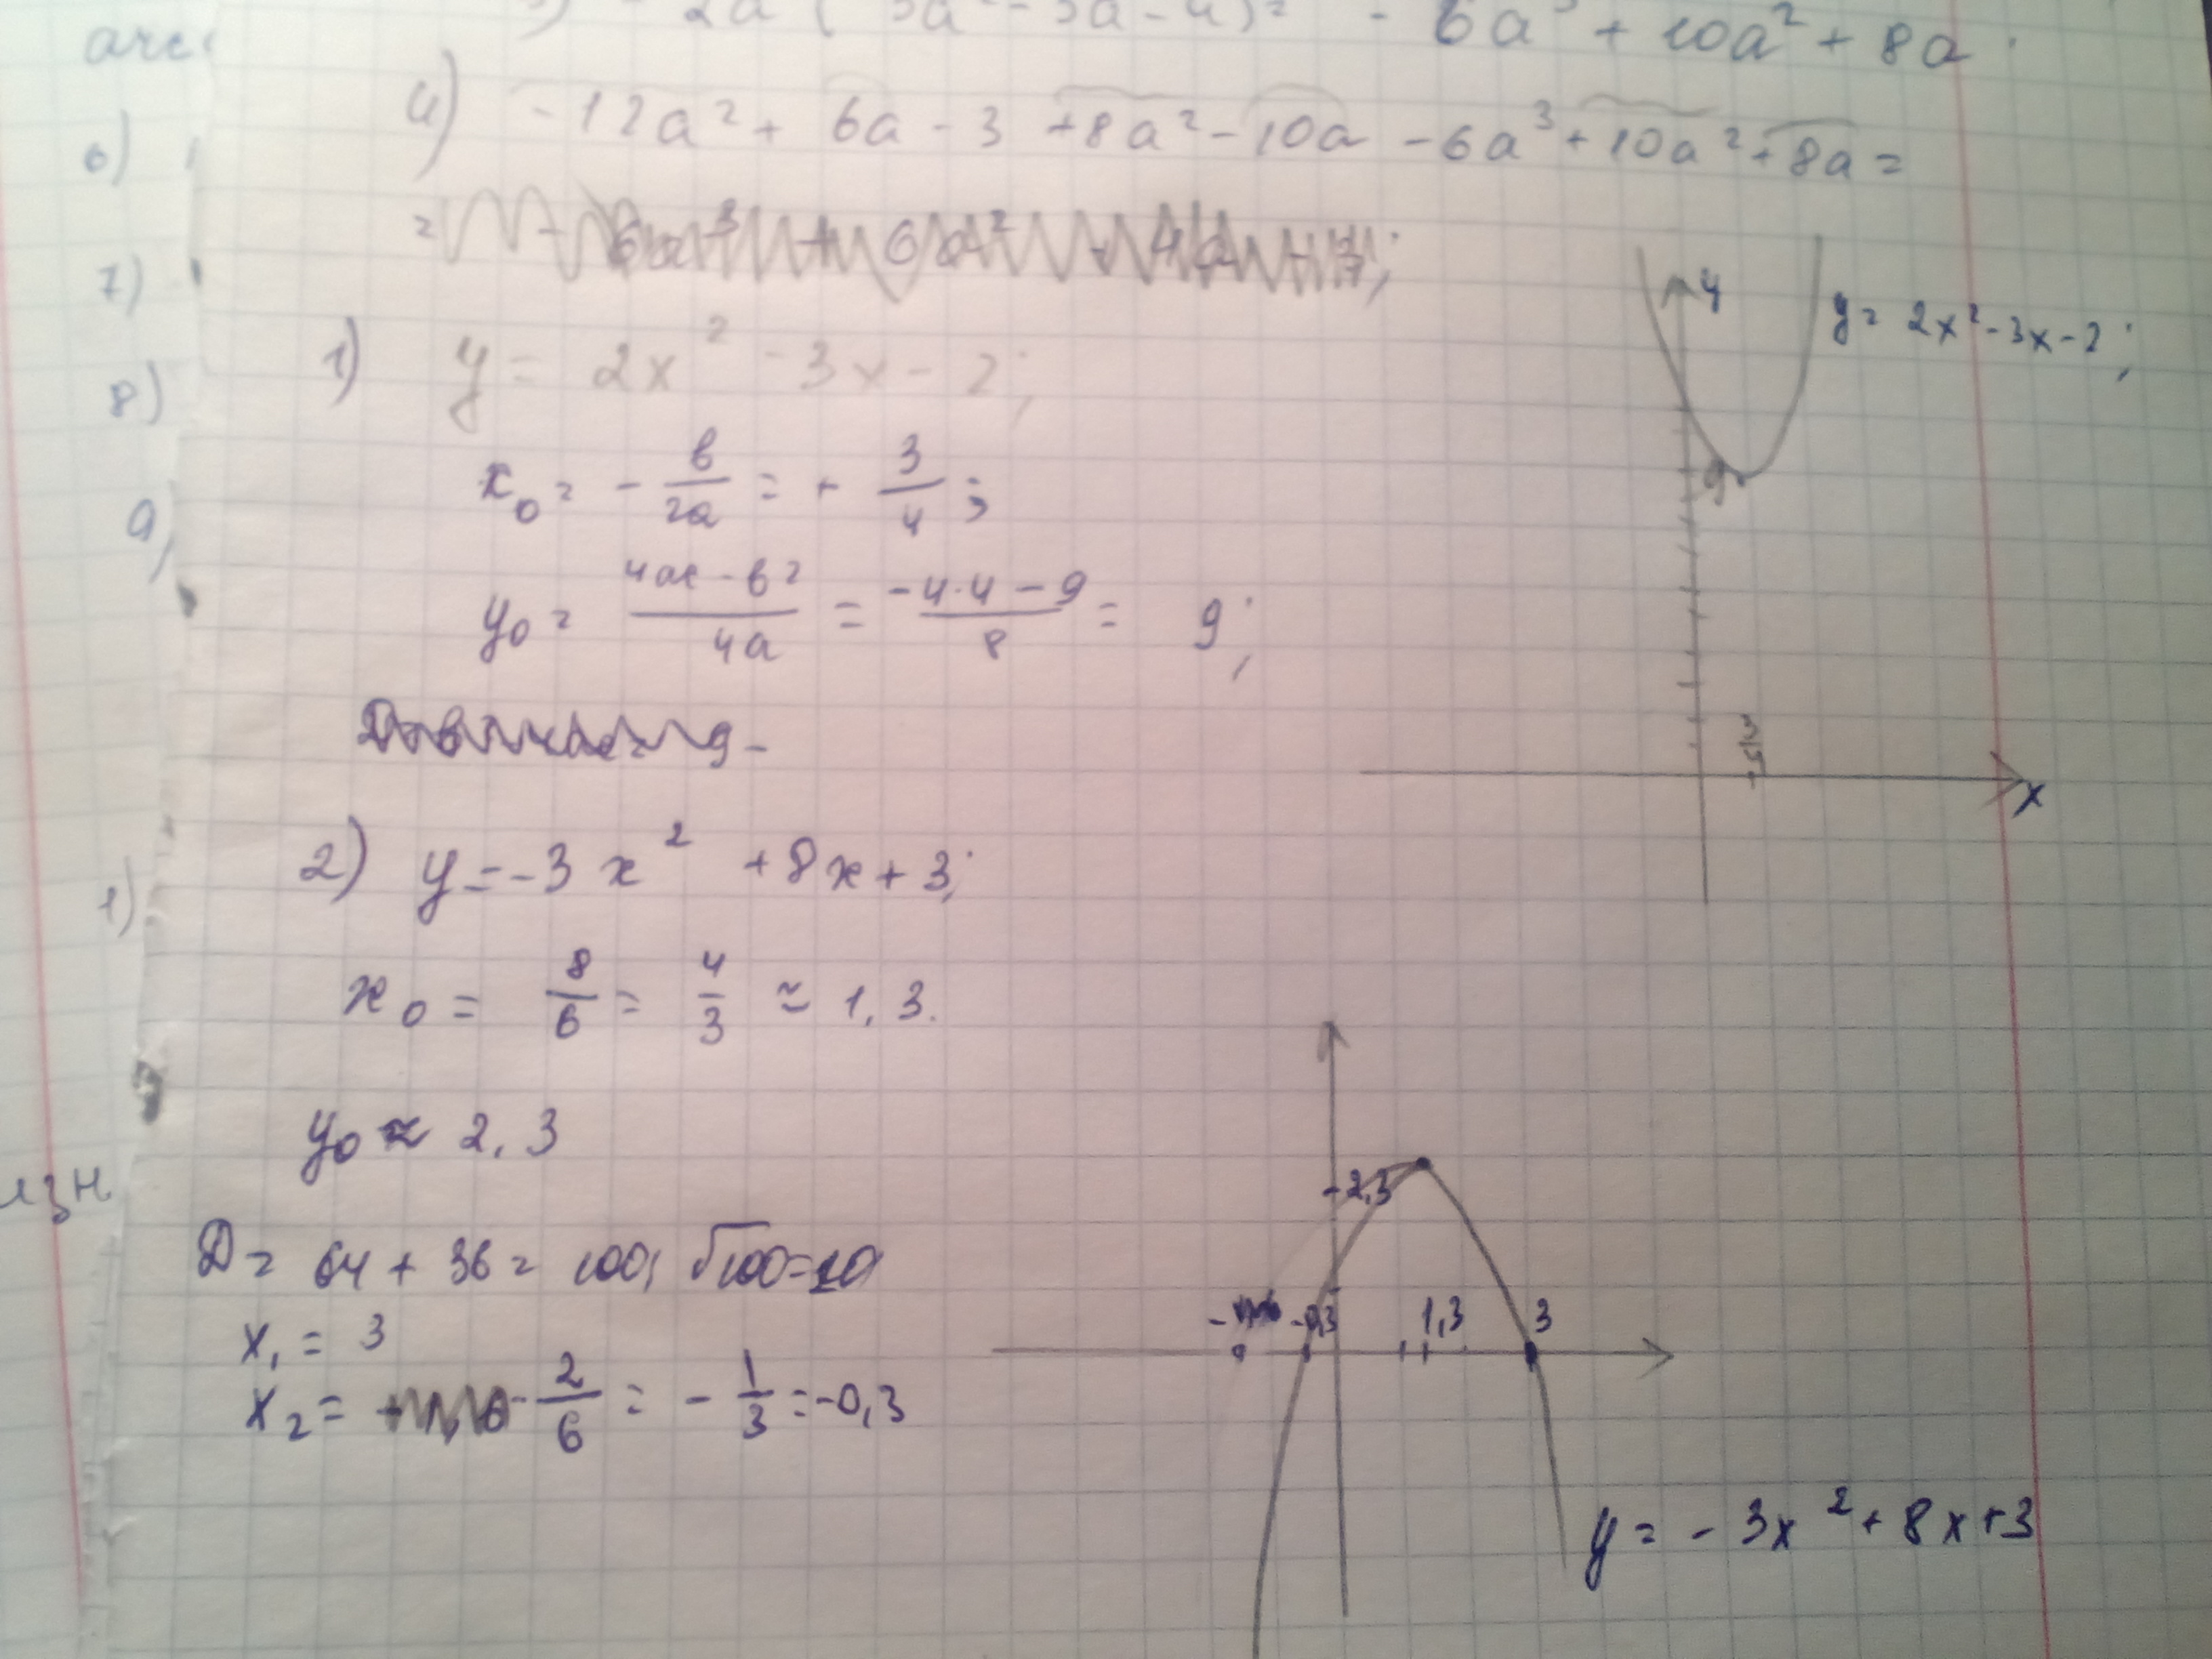 - 2a ( 3a² - 5a - 4 ) = - 6a³ + 10a² + 8a
4) - 12a² + 6a - 3 + 8a² - 10a - 6a³ + 10a² + 8a =
=
1) y = 2x² - 3x - 2;
x₀ = - в/2a = + 3/4;
y₀ = 4ac - в²/4a = -4·4 - 9/8 = 9;
y
y = 2x² - 3x - 2;
9
3/4
x
2) y = -3x² + 8x + 3;
x₀ = 8/6 = 4/3 ≈ 1,3.
y₀ ≈ 2,3
D = 64 + 36 = 100, √100 = 10
x₁ = 3
x₂ = - 2/6 = - 1/3 = -0,3
2,3
-0,3
1,3
3
y = - 3x² + 8x + 3
6)
7)
8)
9)
1)